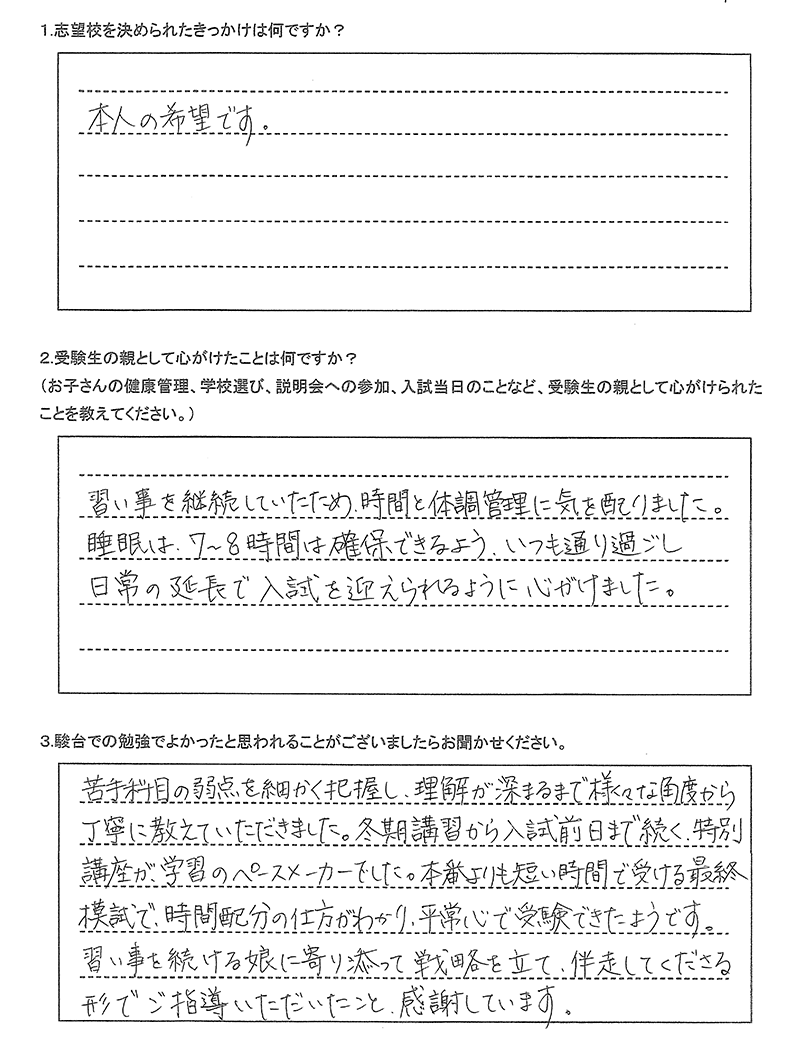 1.志望校を決められたきっかけは何ですか？
本人の希望です。
2.受験生の親として心がけたことは何ですか？
（お子さんの健康管理、学校選び、説明会への参加、入試当日のことなど、受験生の親として心がけられた
ことを教えてください。）
習い事を継続していたため、時間と体調管理に気を配りました。
睡眠は、7～8時間は確保できるよう、いつも通り過ごし
日常の延長で入試を迎えられるように心がけました。
3.駿台での勉強でよかったと思われることがございましたらお聞かせください。
苦手科目の弱点を細かく把握し、理解が深まるまで様々な角度から
丁寧に教えていただきました。冬期講習から入試前日まで続く、特別
講座が、学習のペースメーカーでした。本番よりも短い時間で受ける最終
模試で、時間配分の仕方がわかり、平常心で受験できたようです。
習い事を続ける娘に寄り添って戦略を立て、伴走してくださる
形でご指導いただいたこと、感謝しています。